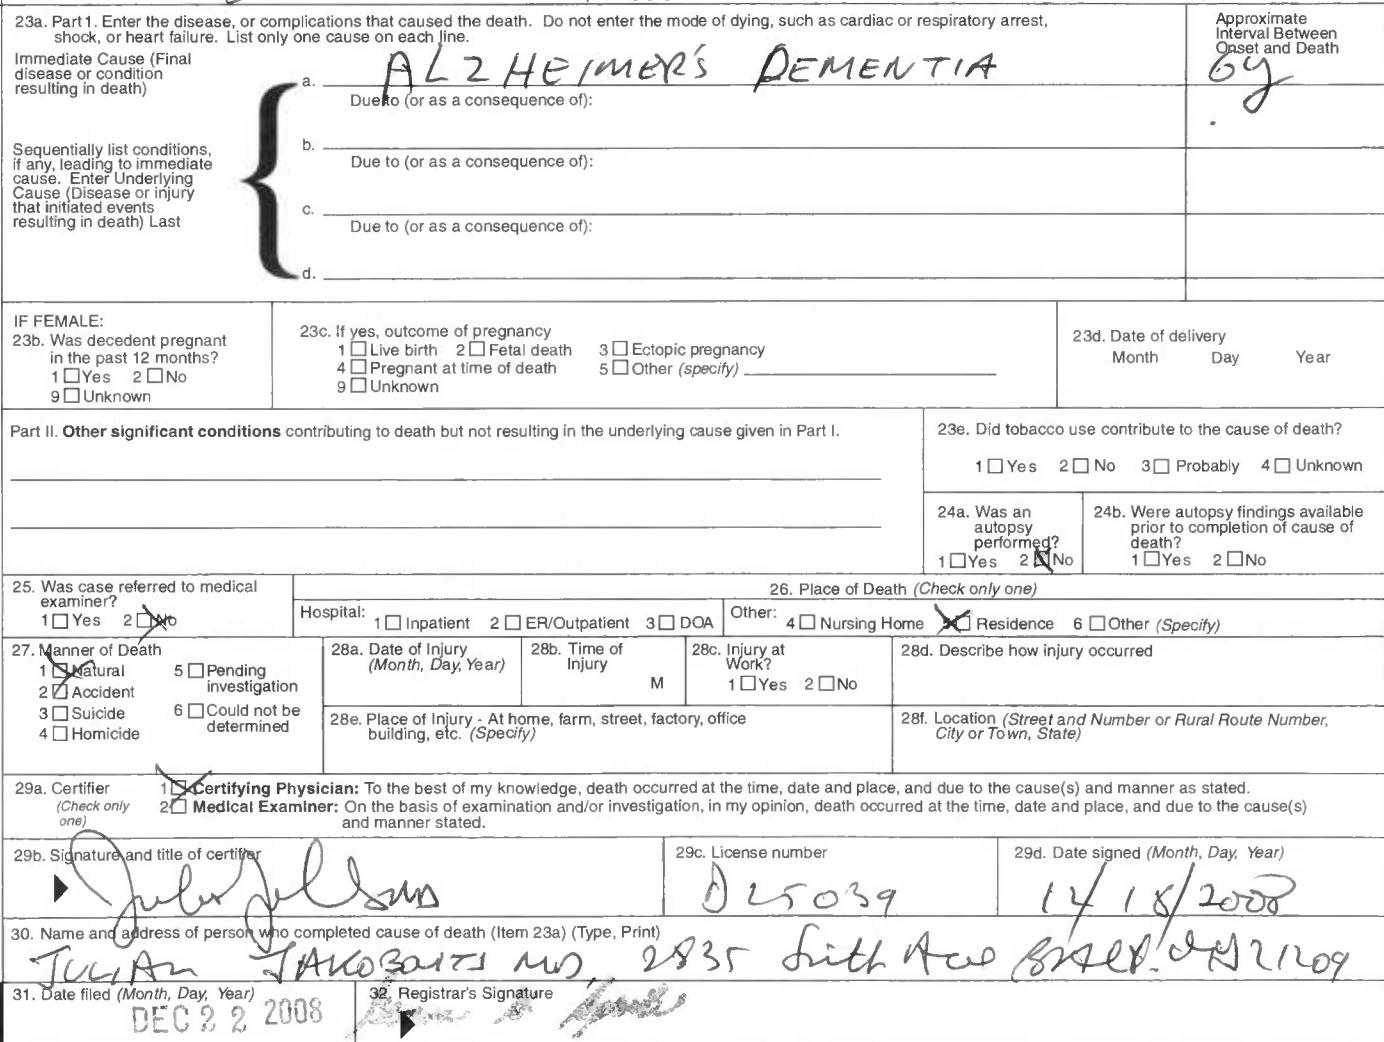 23a. Part 1. Enter the disease, or complications that caused the death. Do not enter the mode of dying, such as cardiac or respiratory arrest,
shock, or heart failure. List only one cause on each line.
Approximate
Interval Between
Onset and Death
Immediate Cause (Final
disease or condition
resulting in death)
a. ALZHEIMER'S DEMENTIA
6y
Due to (or as a consequence of):
Sequentially list conditions,
if any, leading to immediate
cause. Enter Underlying
Cause (Disease or injury
that initiated events
resulting in death) Last
b.
Due to (or as a consequence of):
c.
Due to (or as a consequence of):
d.
IF FEMALE:
23b. Was decedent pregnant
in the past 12 months?
1 Yes 2 No
9 Unknown
23c. If yes, outcome of pregnancy
1 Live birth 2 Fetal death 3 Ectopic pregnancy
4 Pregnant at time of death 5 Other (specify)
9 Unknown
23d. Date of delivery
Month Day Year
Part II. Other significant conditions contributing to death but not resulting in the underlying cause given in Part I.
23e. Did tobacco use contribute to the cause of death?
1 Yes 2 No 3 Probably 4 Unknown
24a. Was an
autopsy
performed?
1 Yes 2 No
24b. Were autopsy findings available
prior to completion of cause of
death?
1 Yes 2 No
25. Was case referred to medical
examiner?
1 Yes 2 No
26. Place of Death (Check only one)
Hospital: 1 Inpatient 2 ER/Outpatient 3 DOA Other: 4 Nursing Home 5 Residence 6 Other (Specify)
27. Manner of Death
1 Natural
2 Accident
3 Suicide
4 Homicide
5 Pending
investigation
6 Could not be
determined
28a. Date of Injury
(Month, Day, Year)
28b. Time of
Injury
M
28c. Injury at
Work?
1 Yes 2 No
28d. Describe how injury occurred
28e. Place of Injury - At home, farm, street, factory, office
building, etc. (Specify)
28f. Location (Street and Number or Rural Route Number,
City or Town, State)
29a. Certifier
(Check only
one)
1 Certifying Physician: To the best of my knowledge, death occurred at the time, date and place, and due to the cause(s) and manner as stated.
2 Medical Examiner: On the basis of examination and/or investigation, in my opinion, death occurred at the time, date and place, and due to the cause(s)
and manner stated.
29b. Signature and title of certifier
29c. License number
D25039
29d. Date signed (Month, Day, Year)
30. Name and address of person who completed cause of death (Item 23a) (Type, Print)
JULIAN JAKOBOVITS MD, 2835 Smith Ave 21209
31. Date filed (Month, Day, Year)
DEC 22 2008
32. Registrar's Signature